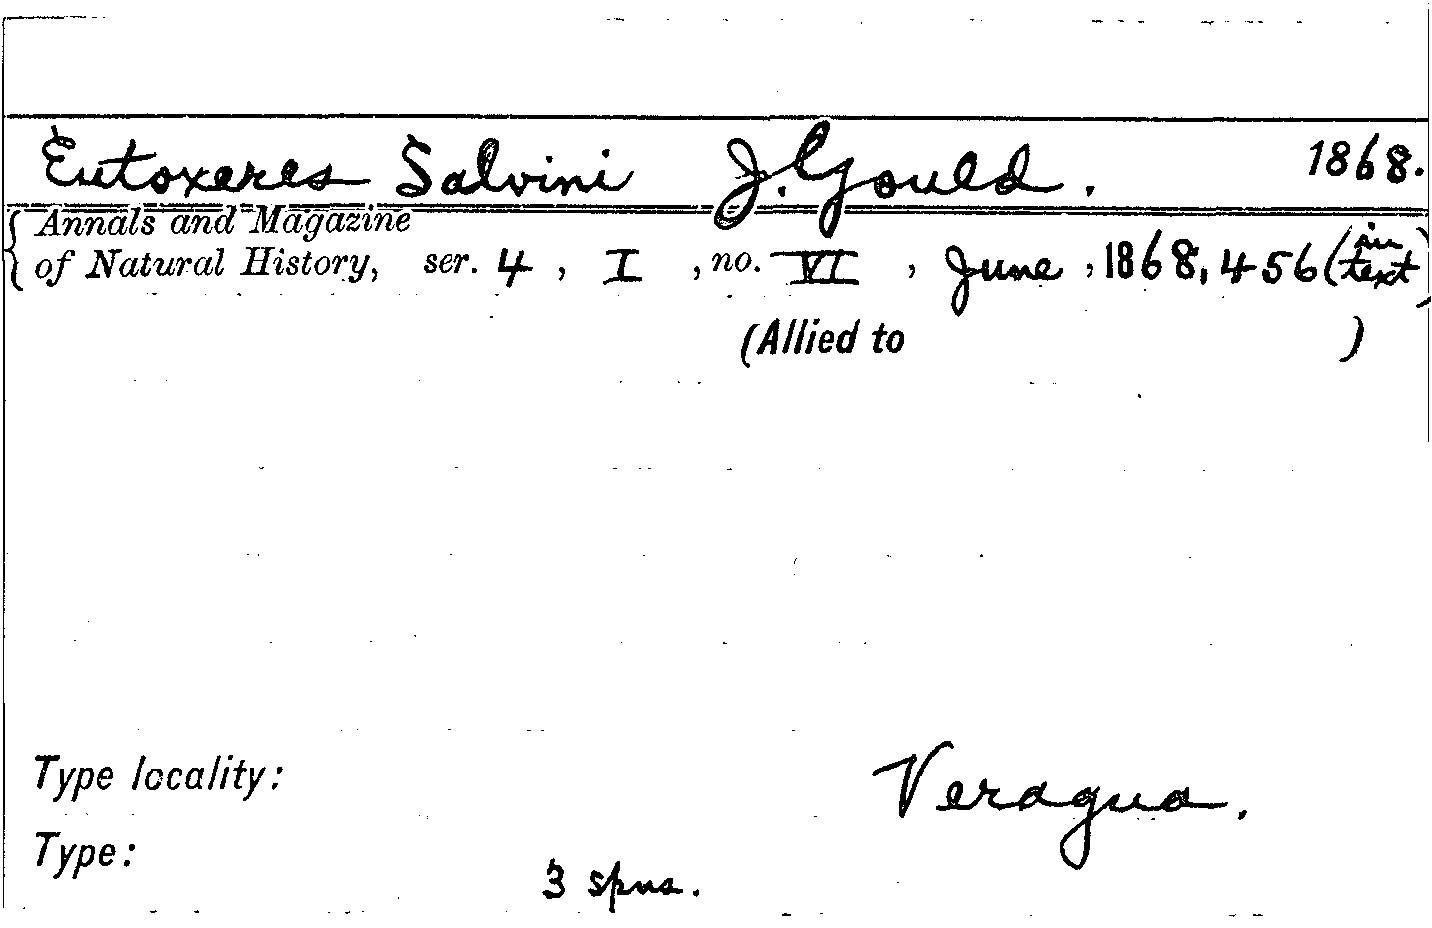 Eutoxeres Salvini J. Gould. 1868.
Annals and Magazine
of Natural History, ser. 4, I, no. VI, June, 1868, 456 (in text)
(Allied to )
Type locality: Veragua.
Type: 3 spns.